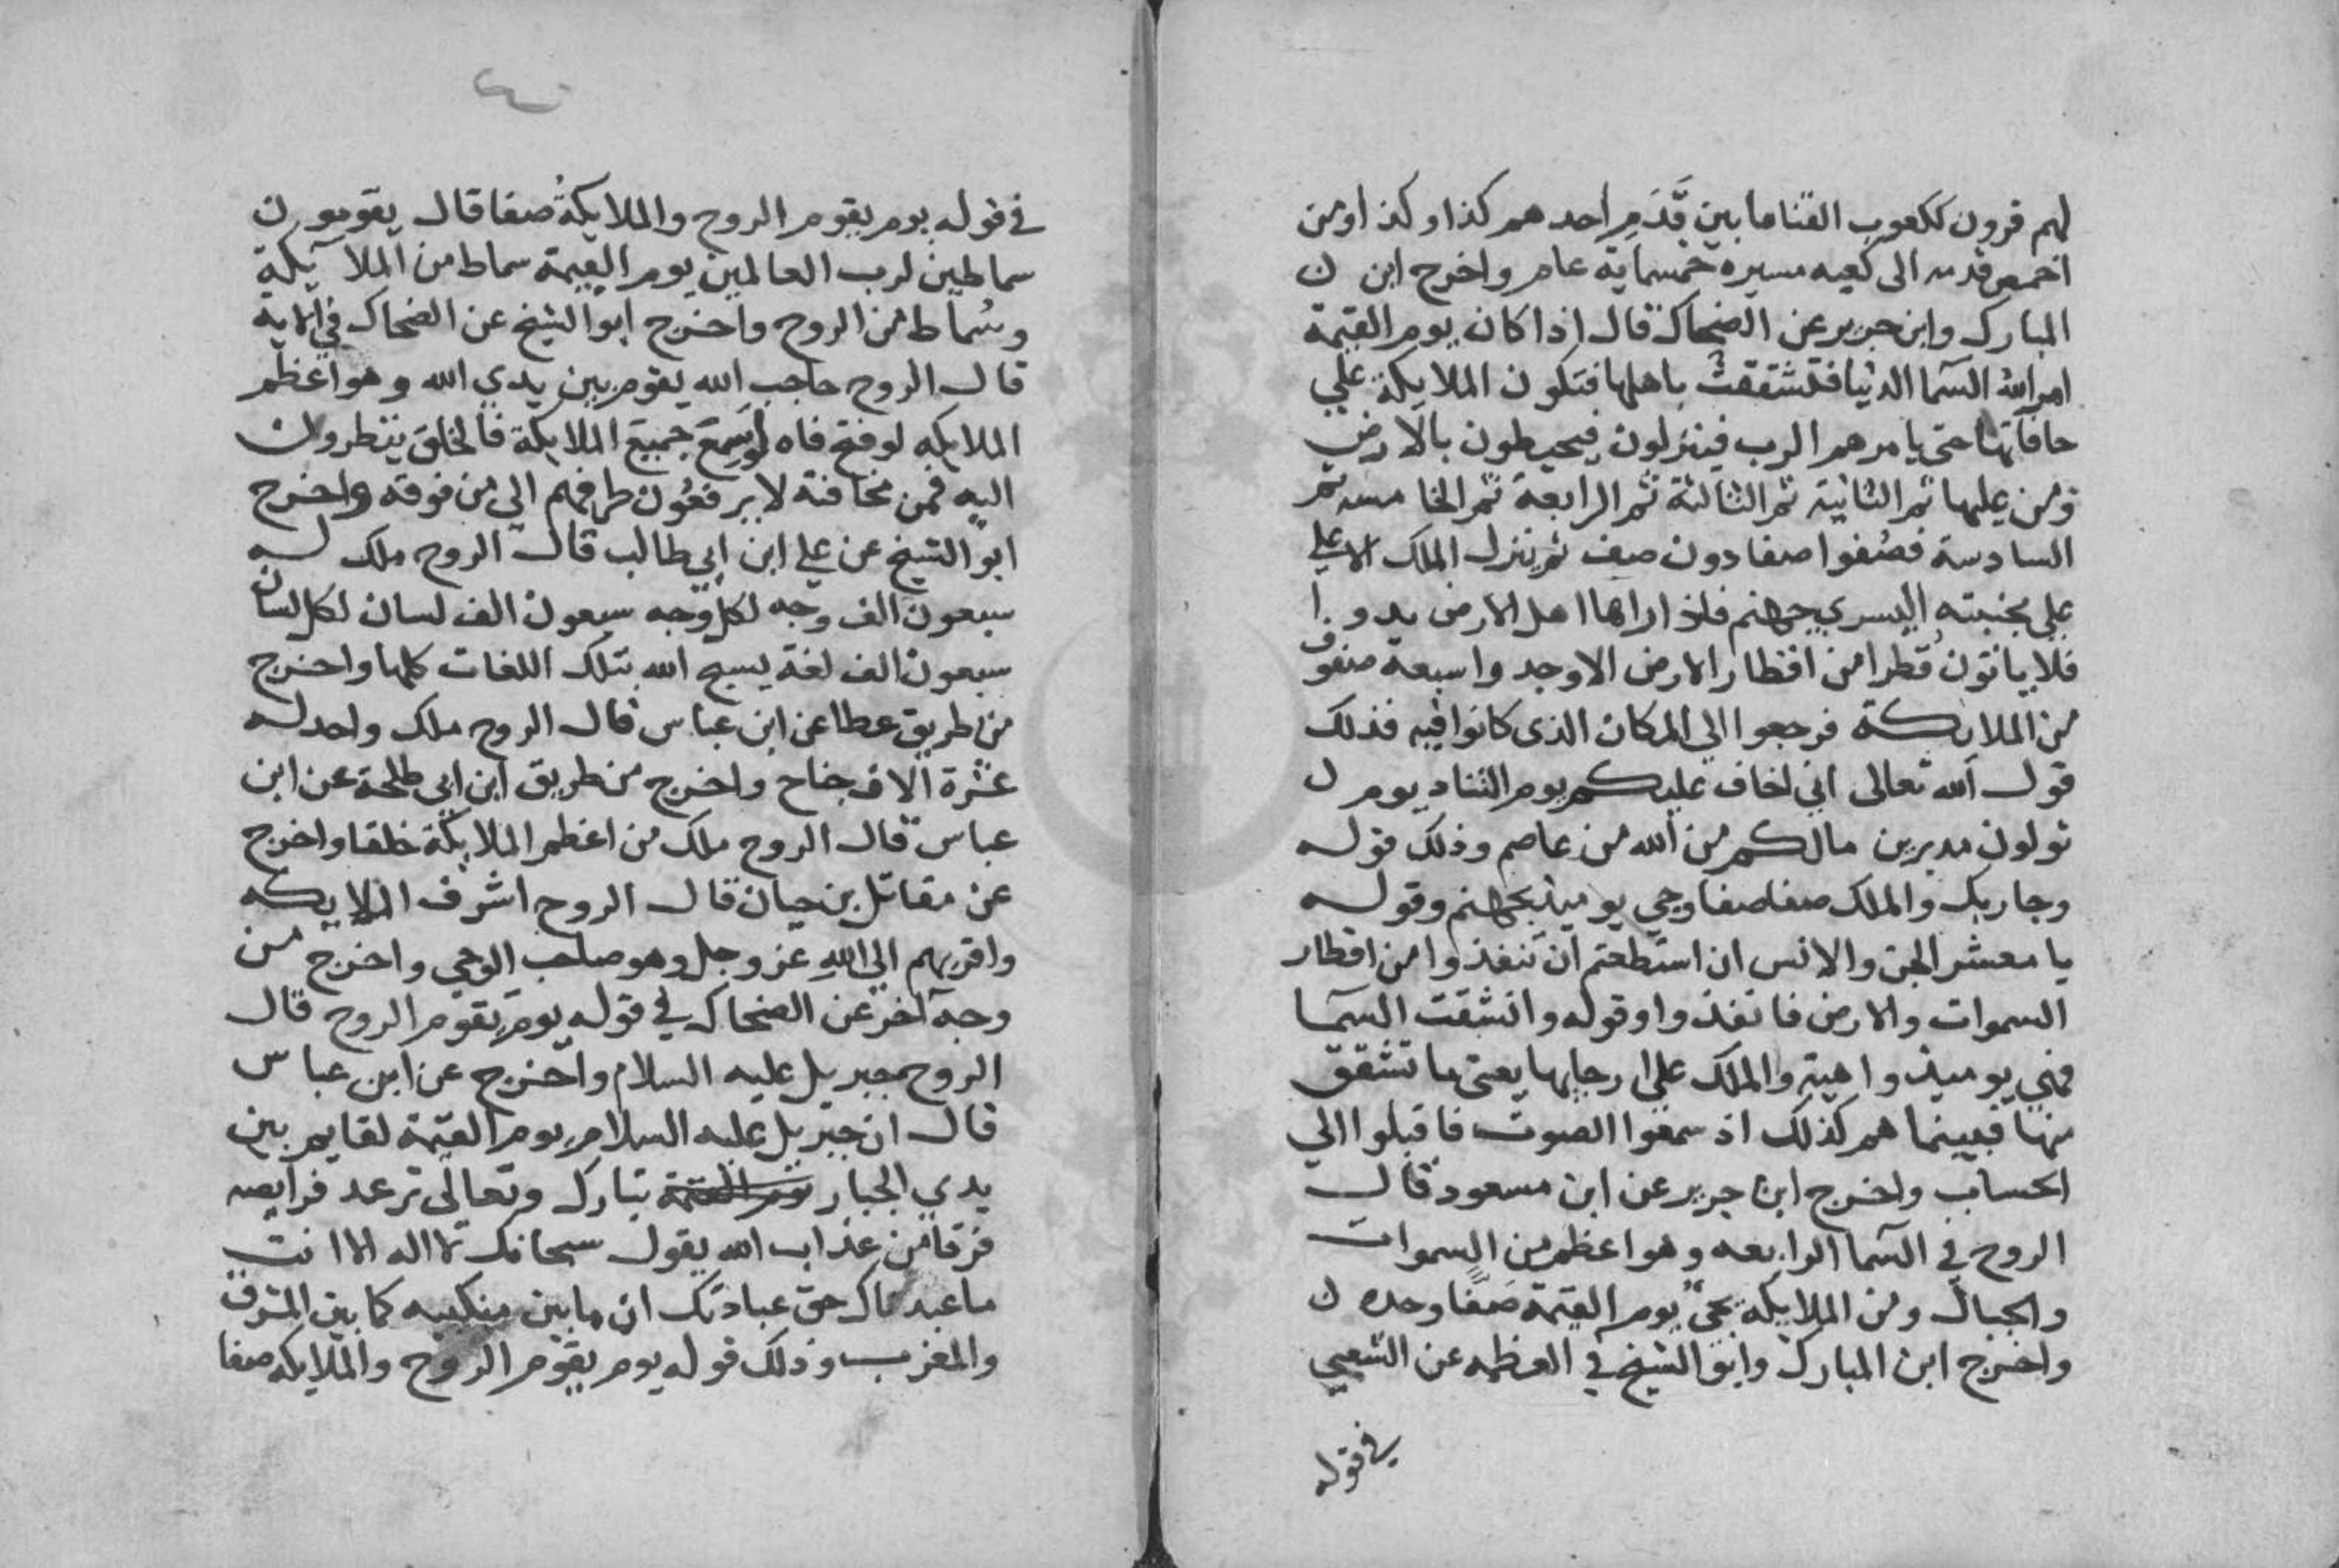 لهم قرون ككعوب القنا ما بين قَدَمِ احدهم كذا وكذا ومن
اخمص قدمه الى كعبه مسيره خمسماية عام واخرج ابن
المبارك وابن جرير عن الضحاك قال اذا كان يوم القيمة
امر الله السما الدنيا فتشققت باهلها فتكون الملايكة على
حافاتها حتى يامرهم الرب فينزلون فيحيطون بالارض
ومن عليها ثم الثانية ثم الثالثة ثم الرابعة ثم الخامسه ثم
السادسة فصفوا صفا دون صف ثم ينزل الملك الاعلي
على مجنبته اليسري جهنم فاذا راها اهل الارض بدوا
فلا ياتون قطرا من اقطار الارض الا وجدوا سبعة صفوف
من الملايكة فرجعوا الي المكان الذى كانوا فيه فذلك
قول الله تعالى اني اخاف عليكم يوم التناد يوم
تولون مدبرين مالكم من الله من عاصم وذلك قوله
وجا ربك والملك صفا صفا وجي يوميذ بجهنم وقوله
يا معشر الجن والانس ان استطعتم ان تنفذوا من اقطار
السموات والارض فانفذوا وقوله وانشقت السما
فهي يوميذ واهية والملك على ارجايها يعنى ما تشقق
منها فبينما هم كذلك اذ سمعوا الصوت فاقبلوا الي
الحساب واخرج ابن جرير عن ابن مسعود قال
الروح في السما الرابعه وهو اعظم من السموات
والجبال ومن الملايكة يجئ يوم القيمة صفًا وحده
واخرج ابن المبارك وابو الشيخ في العظمه عن الشعبي
في قوله
في قوله يوم يقوم الروح والملايكةُ صفا قال يقومون
سماطين لرب العالمين يوم القيمة سماط من الملآيكة
وسماط من الروح واخرج ابو الشيخ عن الضحاك في الاية
قال الروح حاجب الله يقوم بين يدي الله وهو اعظم
الملايكه لو فتح فاه لوسع جميع الملايكة فالخلق ينظرون
اليه فمن مخافته لا يرفعُون طرفهم الى من فوقه واخرج
ابو الشيخ عن علي ابن ابي طالب قال الروح ملك له
سبعون الف وجه لكل وجه سبعون الف لسان لكل لسان
سبعون الف لغة يسبح الله بتلك اللغات كلها واخرج
من طريق عطا عن ابن عباس قال الروح ملك واحد له
عشرة الاف جناح واخرج من طريق ابن ابي طلحة عن ابن
عباس قال الروح ملك من اعظم الملايكة خلقا واخرج
عن مقاتل بن حيان قال الروح اشرف الملايكه
واقربهم الي الله عز وجل وهو صاحب الوحي واخرج من
وجه آخر عن الضحاك في قوله يوم يقوم الروح قال
الروح جبريل عليه السلام واخرج عن ابن عباس
قال ان جبريل عليه السلام يوم القيمة لقايم بين
يدي الجبار يوم القيمة تبارك وتعالى ترعد فرايصه
فرقا من عذاب الله يقول سبحانك لا اله الا انت
ما عبدناك حق عبادتك ان ما بين منكبيه كما بين المشرق
والمغرب وذلك قوله يوم يقوم الروح والملايكه صفا